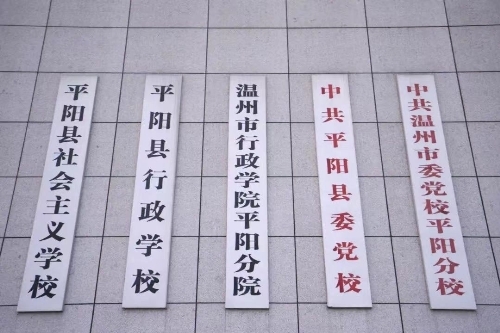 平阳县社会主义学校
平阳县行政学校
温州市行政学院平阳分院
中共平阳县委党校
中共温州市委党校平阳分校